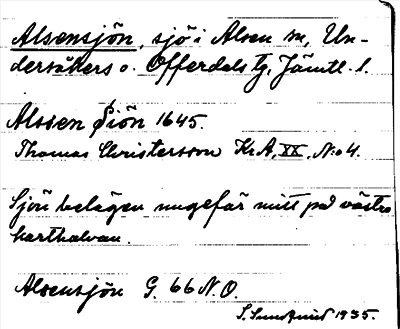 Alsensjön, sjö i Alsen sn, Un-
dersåkers o. Offerdals tg, Jämtl. l.
Alssen Siön 1645.
Thomas Christersson KrA, XX, N:o 4.
Sjön belägen ungefär mitt på västra
karthalvan.
Alsensjön G. 66 N.O.
S. Sundquist 1935.